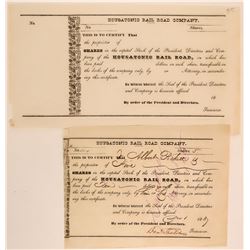 HOUSATONIC RAIL ROAD COMPANY.
No. Shares,
No.
THIS IS TO CERTIFY That
the proprietor of
SHARES in the capital Stock of the President Directors and Company
of the HOUSATONIC RAIL ROAD, on which has
been paid dollars on each share, transferable on
the books of the company only, by or Attorney, on surrendering
this certificate.
In witness whereof the Seal of the President Directors
and Company is hereunto affixed
18
By order of the President and Directors,
Treasurer
HOUSATONIC RAIL ROAD COMPANY.
No. Shares,
THIS IS TO CERTIFY That
the proprietor of
SHARES in the capital Stock of the President Directors and Company
of the HOUSATONIC RAIL ROAD, on which has
been paid dollars on each share, transferable on
the books of the company only by or Attorney, on surrendering
this certificate.
In witness whereof the Seal of the President Directors
and Company is hereunto affixed
By order of the President and Directors,
Treasurer